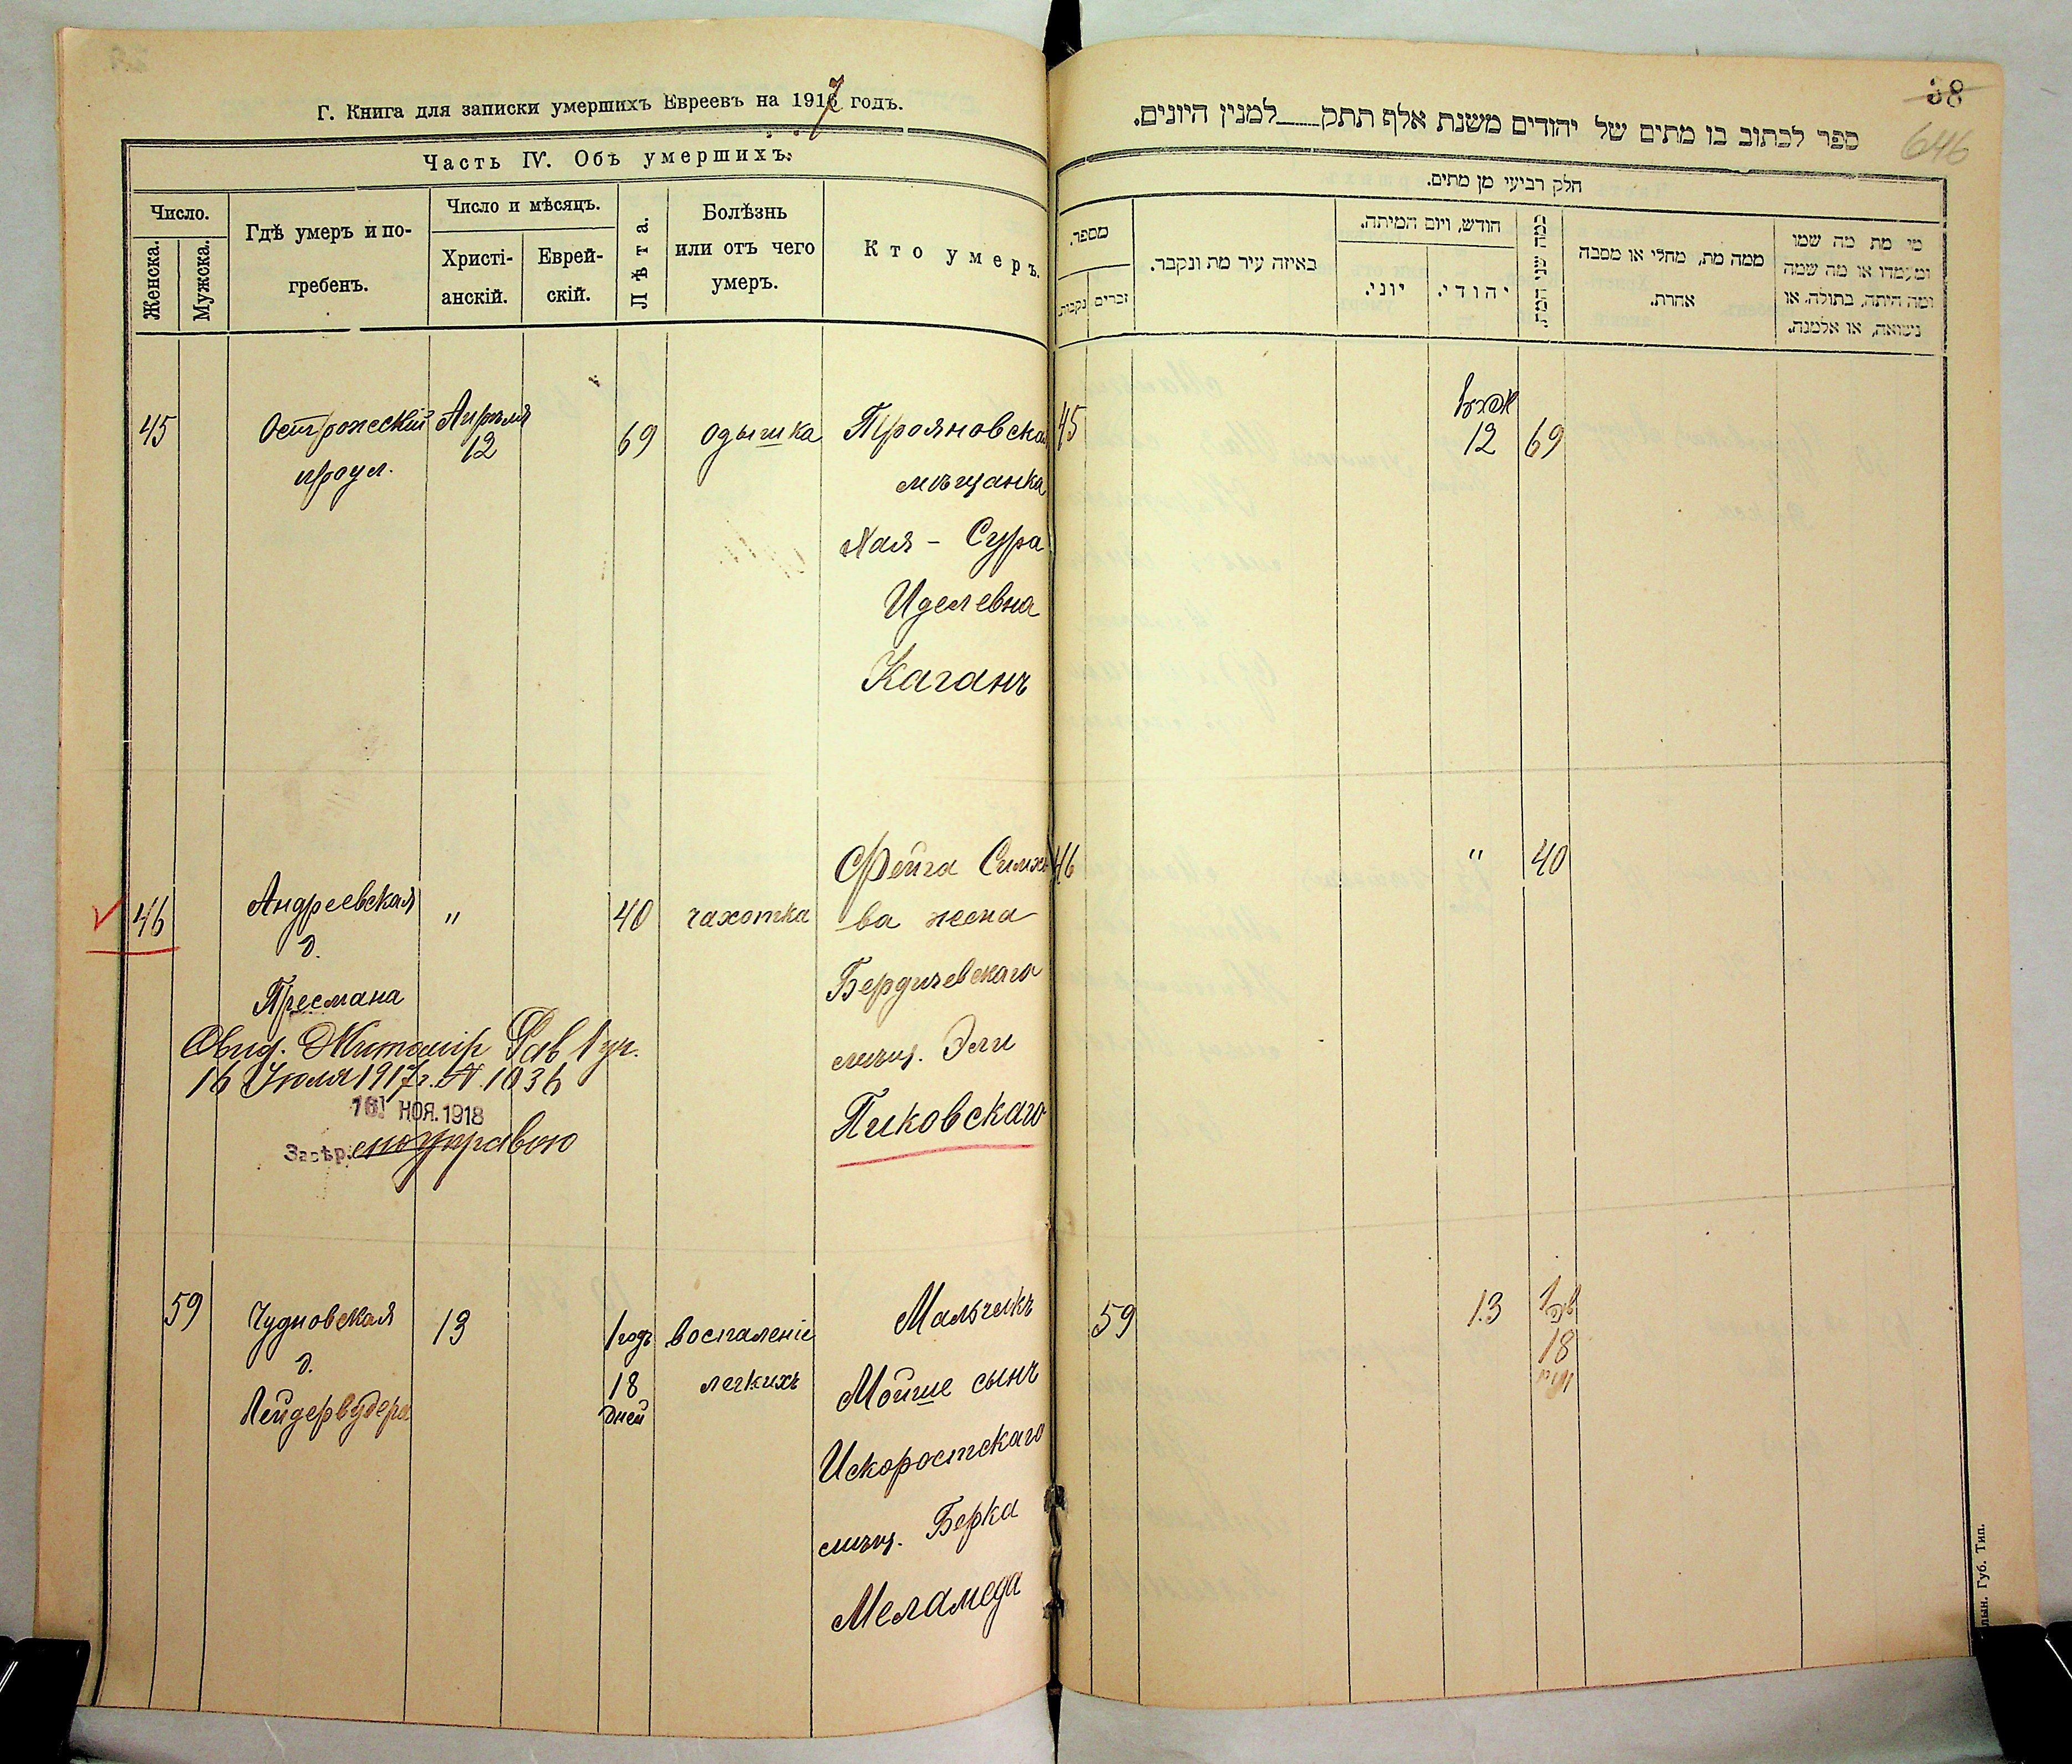 Г. Книга для записки умершихъ Евреевъ на 1917 годъ.
Часть IV. Объ умершихъ.
Число.
Женска.
Мужска.
Гдѣ умеръ и по-
гребенъ.
Число и мѣсяцъ.
Христі-
анскій.
Еврей-
скій.
Лѣта.
Болѣзнь
или отъ чего
умеръ.
Кто умеръ.
45
Острожский
проул.
Апрѣля
12
69
одышка
Трояновская
мѣщанка
Хая - Сура
Иделевна
Каганъ
46
Андреевская
д.
Пресмана
"
40
чахотка
Фейга Симхо
ва жена
Бердичевскаго
мѣщ. Эли
Пиковскаго
Овид. Житомір Рав
16 Июля 1917 г. N. 1036
16 НОЯ. 1918
Завѣр.
59
Чудновская
д.
Лейдервудера
13
1 годъ
18
дней
воспаленіе
легкихъ
Мальчикъ
Мойше сынъ
Искоростскаго
мѣщ. Берка
Меламеда
38
646
ספר לכתוב בו מתים של יהודים משנת אלף תתק למנין היונים.
חלק רביעי מן מתים.
מספר.
נקבות
זכרים
באיזה עיר מת ונקבר.
חודש, ויום המיתה.
יוני.
יהודי.
כמה שני המת
ממה מת, מחלי או מסבה
אחרת.
מי מת מה שמו
ומעמדו או מה שמה
ומה היתה, בתולה, או
נשואה, או אלמנה.
45
12
69
46
"
40
59
13
1
18
Губ. Тип.